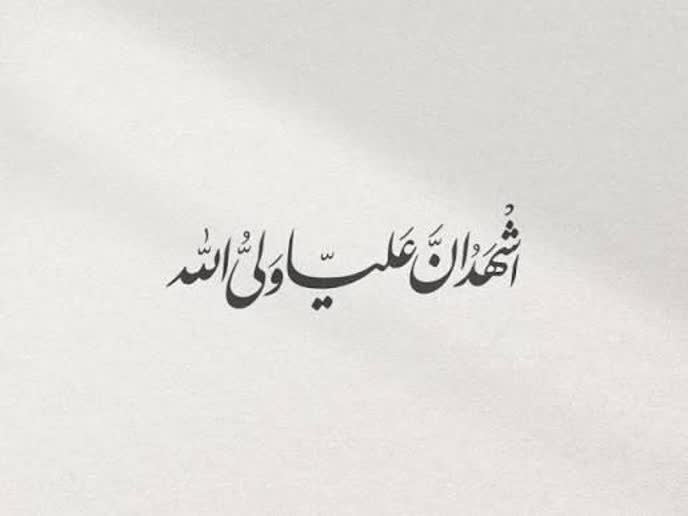 اشْهَدُ انَّ عَليّا وَلىُّ اللّٰه